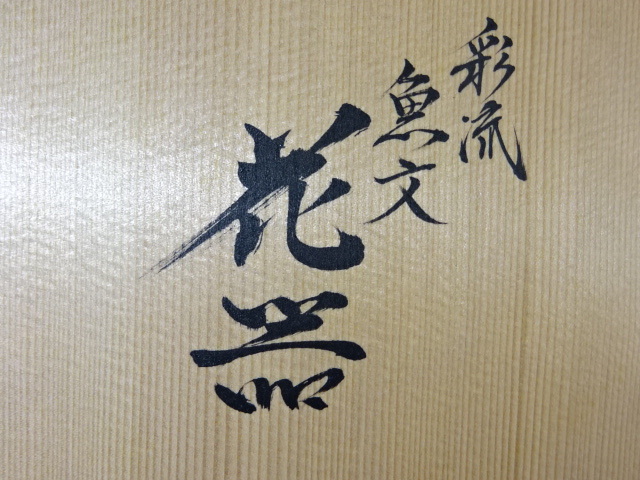 彩流
魚文
花器